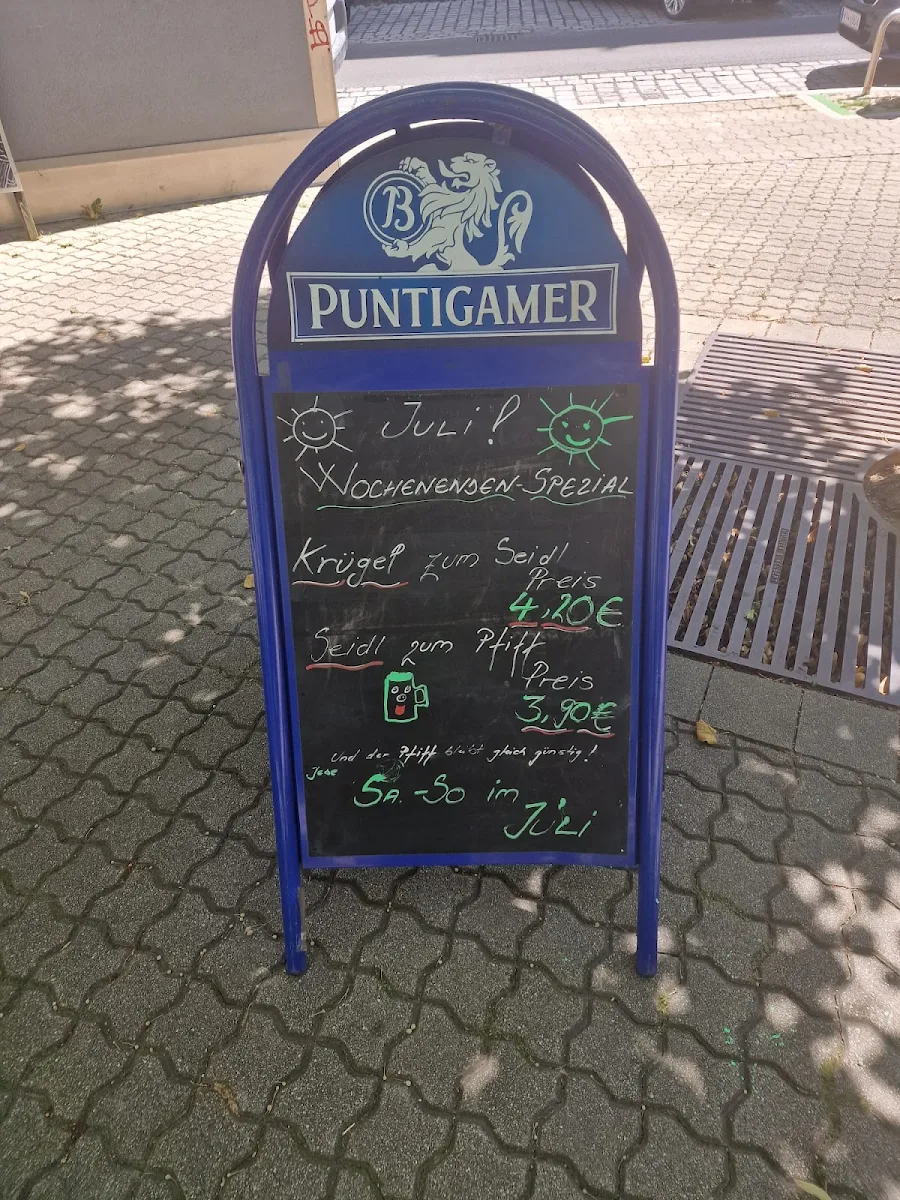 B
PUNTIGAMER
JULI!
WOCHENENDEN-SPEZIAL
Krügerl zum Seidl
Preis
4,20€
Seidl zum Pfiff
Preis
3,90€
und der Pfiff bleibt gleich günstig!
Jede
SA.-SO im
JULI